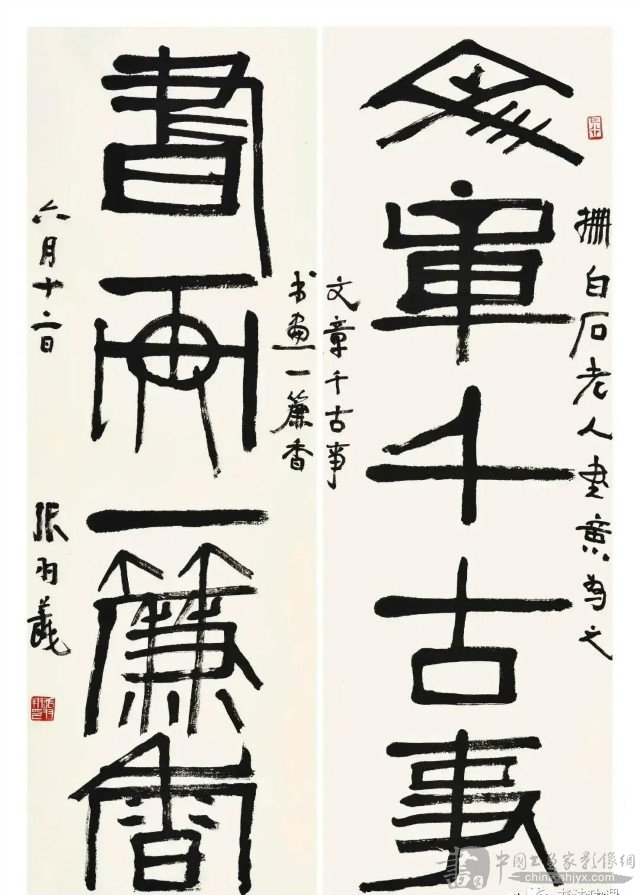 文章千古事
書画一簾香
白石老人書意為之
文章千古事
书画一簾香
六月十二日
张羽羲
中國书画家影像網
chinashjyx.com